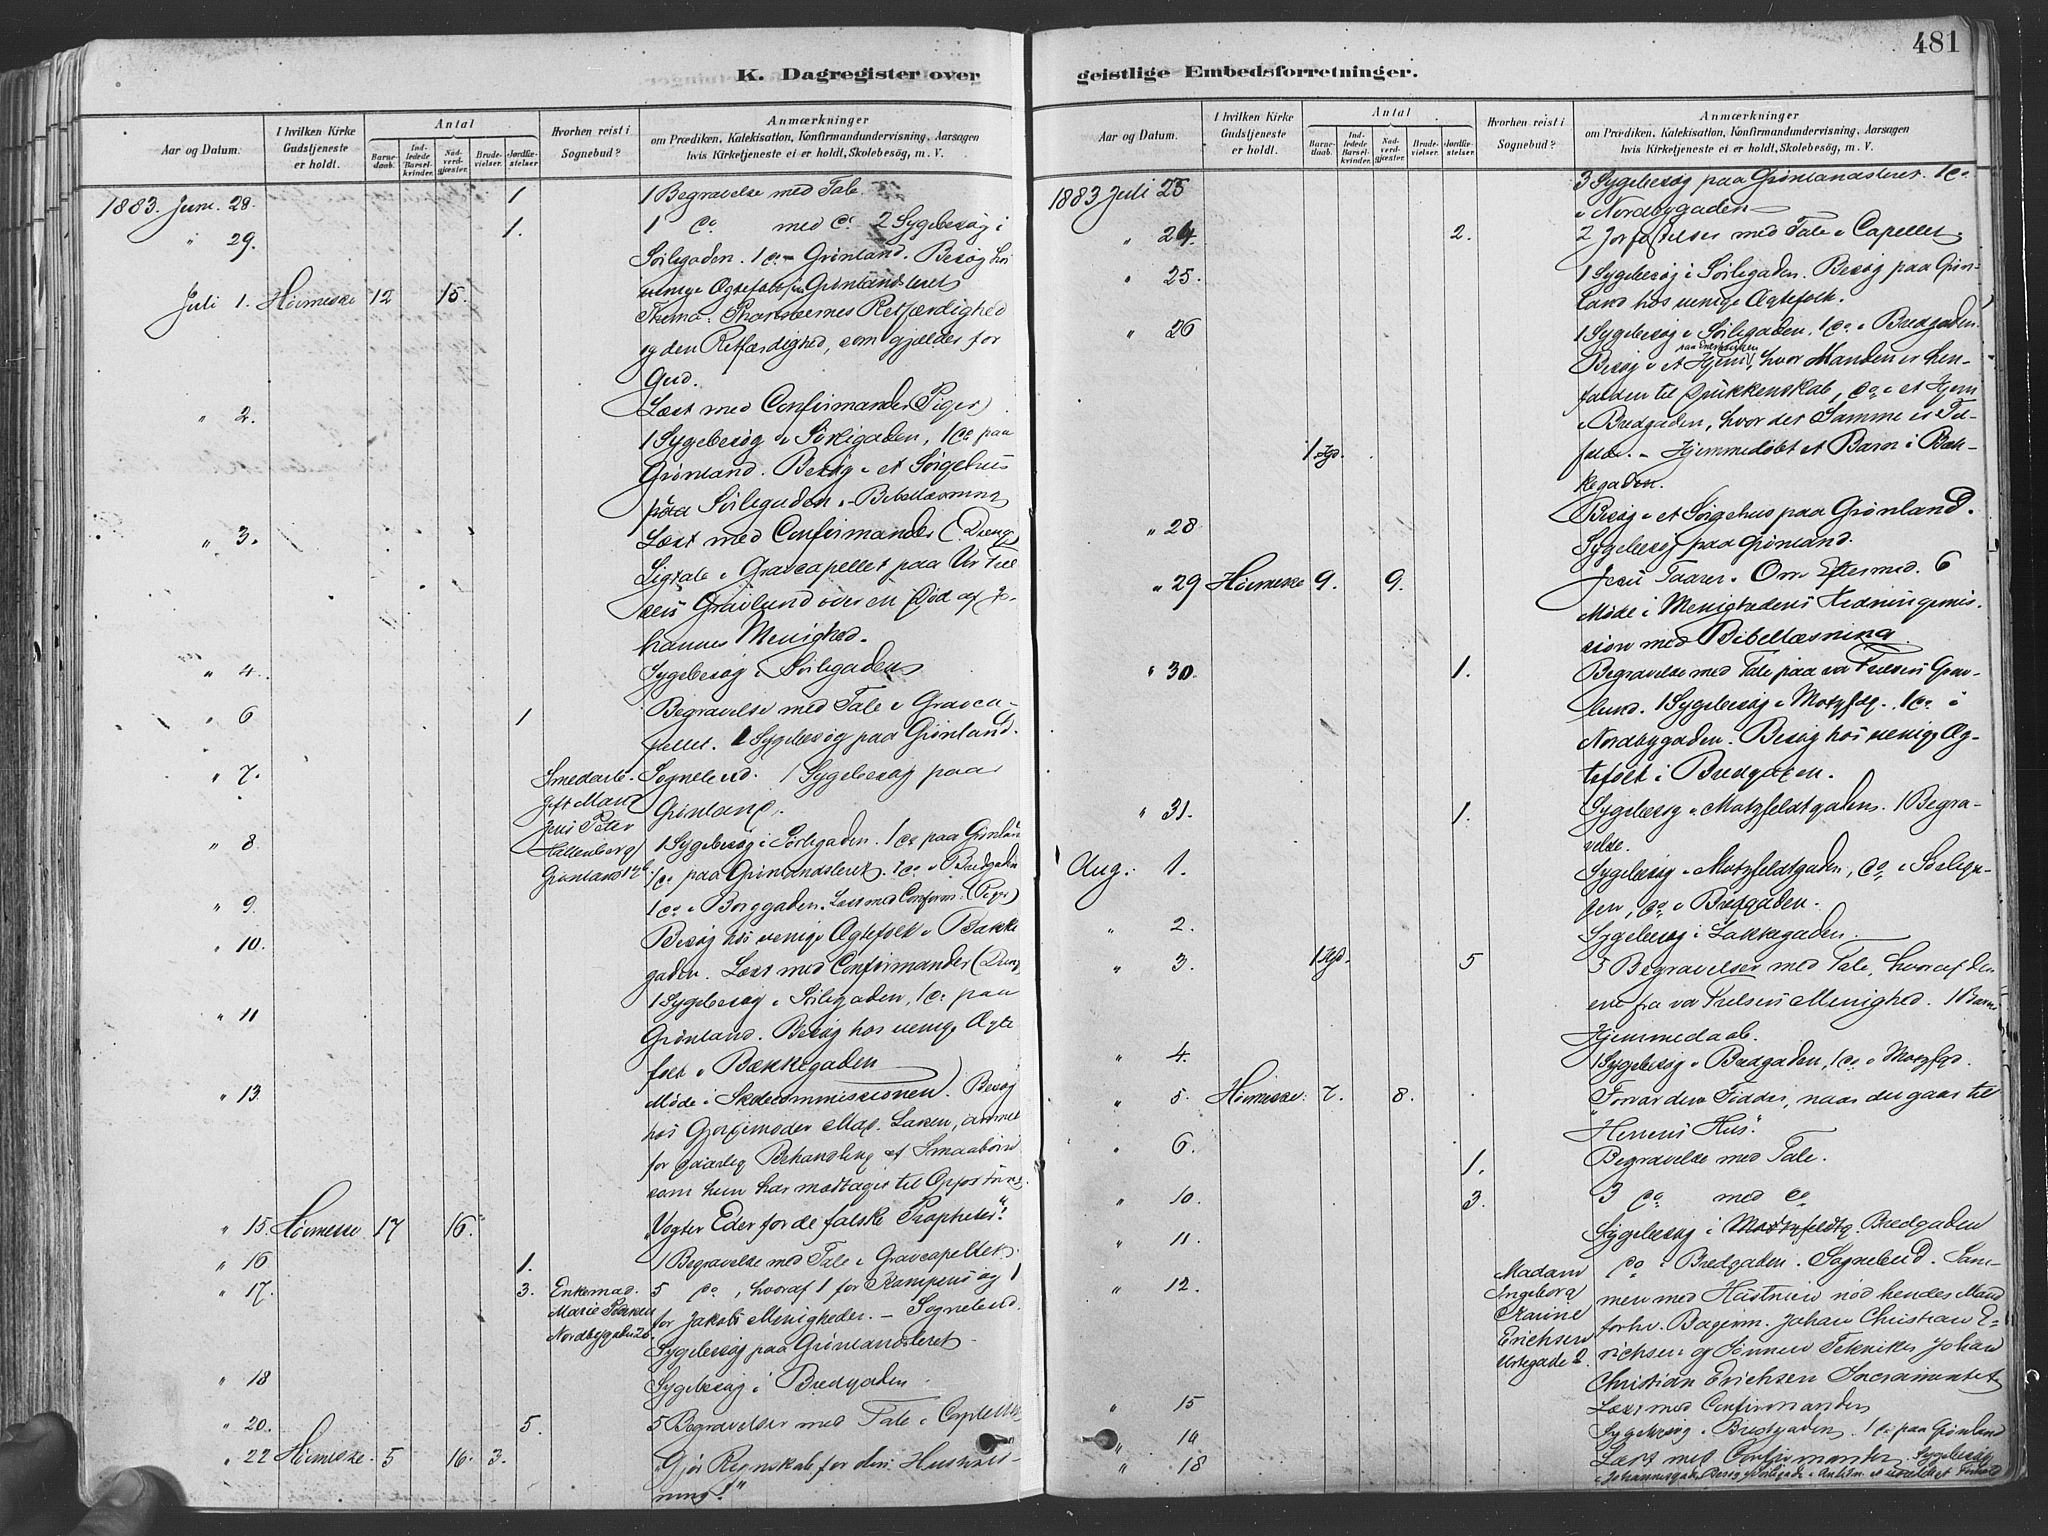 481
K. Dagregister over
Aar og Datum.
I hvilken Kirke Gudstjeneste er holdt.
Antal
Barnedaab.
Indledede Barselkvinder.
Nadverdgjæster.
Brudevielser.
Jordfæstelser.
Hvorhen reist i Sognebud?
Anmærkninger
om Prædiken, Katekisation, Konfirmandundervisning, Aarsagen
hvis Kirketjeneste ei er holdt, Skolebesøg, m. V.
1883. Juni. 28. 1 1 Begravelse med Tale
" 29. 1. 1 Do med Do 2 Sygebesøg i
Sørligaden. 1 Do Grønland. Besøg hos
uenige Ægtefolk paa Grønlandsleret
Juli 1. Høimesse 12 15. Thema: Pharisæernes Retfærdighed
og den Retfærdighed, som gjælder for
Gud.
" 2. Læst med Confirmander (Piger)
1 Sygebesøg i Sørligaden, 1 Do paa
Grønland. Besøg i et Sørgehus
paa Sørligaden. Bibellæsning
" 3. Læst med Confirmander (Dreng)
Ligtale i Gravcapellet paa Vor Frel
sers Gravlund over en Død af Jo-
hannes Menighed.
" 4. Sygebesøg i Sørligaden
" 6 1 Begravelse med Tale i Gravca-
pellet. 1 Sygebesøg paa Grønland.
" 7. Smedarb. Sognebud. 1 Sygebesøg paa
gift Mand Grønland.
Jens Peter
" 8 Hallenberg 1 Sygebesøg i Sørligaden. 1 Do paa Grønland
Grønland 1 Do paa Grønlandsleret. 1 Do i Bredgaden
" 9 1 Do i Borggaden. Læst med Confirm. (Piger)
" 10. Besøg hos uenige Ægtefolk i Bakke
gaden. Læst med Confirmander (Dreng)
" 11 1 Sygebesøg i Sørligaden, 1 Do paa
Grønland. Besøg hos uenige Ægte
folk i Bakkegaden
" 13 Møde i Skolecommissionen. Besøg
hos Gjordemoder Mad. Larsen, anmel
for daarlig Behandling af Smaabørn
som hun har modtaget til Opfostring.
" 15 Høimesse 17 16. "Vogter Eder for de falske Propheter."
" 16 1. 1 Begravelse med Tale i Gravcapellet.
" 17. 3. Enkemad. 5 Do, hvoraf 1 for Kampens og 1
Marie for Jakobs Menigheder. – Sognebud.
Nordbygaden 20. Sygebesøg paa Grønlandsleret
" 18 Sygebesøg i Bredgaden
" 20. 5. 5 Begravelser med Tale i Capellet
" 22 Høimesse. 5 16. 3. "Gjør Regnskab for din Hushold-
ning!"
geistlige Embedsforretninger.
Aar og Datum.
I hvilken Kirke Gudstjeneste er holdt.
Antal
Barnedaab.
Indledede Barselkvinder.
Nadverdgjæster.
Brudevielser.
Jordfæstelser.
Hvorhen reist i Sognebud?
Anmærkninger
om Prædiken, Katekisation, Konfirmandundervisning, Aarsagen
hvis Kirketjeneste ei er holdt, Skolebesøg, m. V.
1883 Juli 23 3 Sygebesøg paa Grønlandsleret. 1 Do
i Nordbygaden
" 24. 2. 2 Jordfæstelser med Tale i Capellet.
" 25. 1 Sygebesøg i Sørligaden. Besøg paa Grøn-
land hos uenige Ægtefolk.
" 26 1 Sygebesøg i Sørligaden. 1 Do i Bredgaden.
Besøg i et Hjem, hvor Manden er hen-
falden til Drukkenskab, Do i et Hjem
i Bredgaden, hvor det Samme er Til-
1 Hjd. fælde. – Hjemmedøbt et Barn i Bak-
kegaden.
" 28 Besøg i et Sørgehus paa Grønland.
Sygebesøg paa Grønland.
" 29 Høimesse 9. 9. Jesu Taarer. Om Eftermed. 6
Møde i Menighedens Hedningemis-
sion med Bibellæsning.
" 30. 1. Begravelse med Tale paa vor Frelsers Grav-
lund. 1 Sygebesøg i Motzfdg. 1 Do i
Nordbygaden. Besøg hos uenige Æg-
tefolk i Bredgaden.
" 31. 1. Sygebesøg i Motzfeldtgaden. 1 Begra-
velse.
Aug. 1. Sygebesøg i Motzfeldtgaden, Do i Sørliga-
den, Do i Bredgaden.
" 2. Sygebesøg i Lakkegaden.
" 3. 1 Hjd. 5 5 Begravelser med Tale, hvoraf den
ene fra vor Frelsers Menighed. 1 Barn
Hjemmedaab.
" 4. 1 Sygebesøg i Bredgaden, 1 Do i Motzfgd.
" 5. Høimesse. 7. 8. "Forvar dine Fødder, naar du gaar til
Herrens Hus".
" 6. 1. Begravelse med Tale.
" 10. 3. 3 Do med Do
" 11. Sygebesøg i Bredgaden
Madam Do i Bredgaden. Sognebud. Sam-
" 12. Ingeborg men med Hustruen nød hendes Mand
Karine forhv. Bagerm. Johan Christian E-
Erichsen richsen og Sønnen Tekniker Johan
Urtegaden Christian Erichsen Sacramentet
" 15 Læst med Confirmander
" 14 Sygebesøg i Bredgaden. 1 Do paa Grønland
" 18 Læst med Confirmander. Sygebesøg